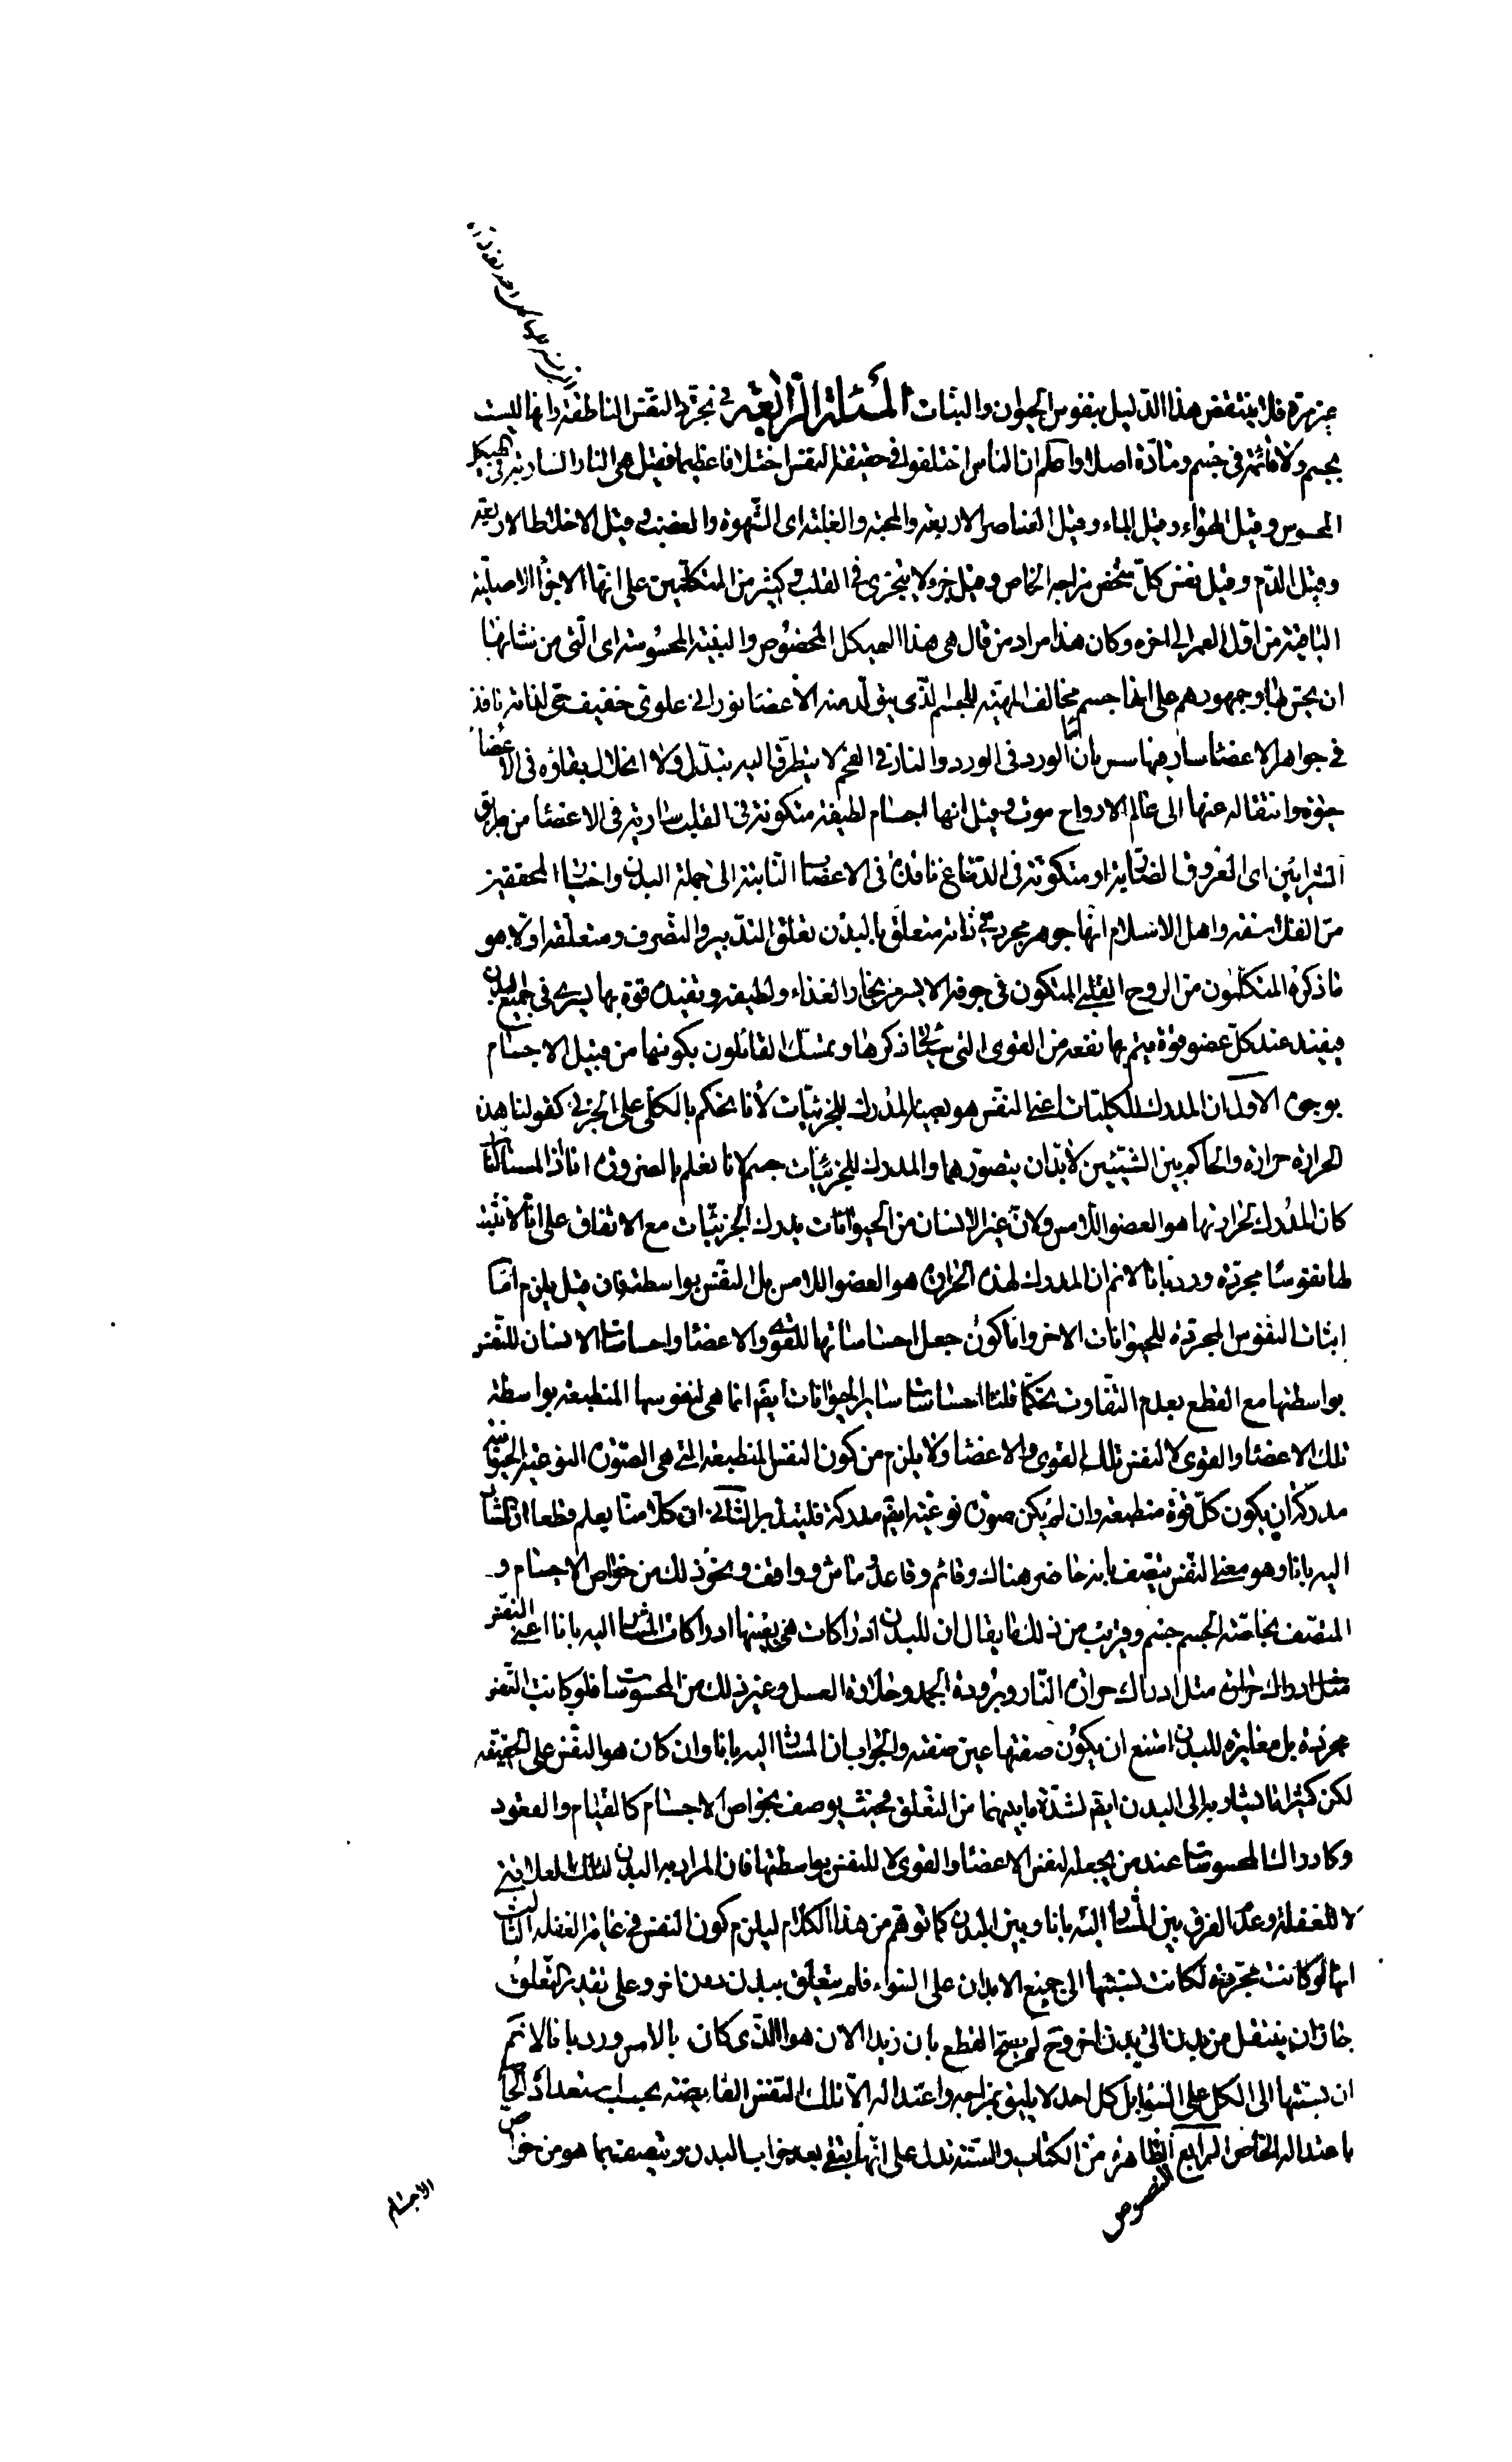 عن مرة فلا ينتقض هذا الدليل بنفوس الحيوان والنبات المسئلة الرابعة في تجرد النفس الناطقة وانها ليست
بجسم ولا قائمة في جسم ومادة اصلا واعلم ان الناس اختلفوا في حقيقة النفس اختلافا عظيما فقيل هي النار السارية في الهيكل
المحسوس وقيل الهواء وقيل الماء وقيل العناصر الاربعة والمحبة والغلبة اى الشهوة والغضب وقيل الاخلاط الاربعة
وقيل الدم وقيل نفس كل شخص مزاجه الخاص وقيل جزء لا يتجزى في القلب وكثير من المتكلمين على انها الاجزاء الاصلية
الباقية من اول العمر الى اخره وكان هذا مراد من قال هي هذا الهيكل المخصوص والبنية المحسوسة اى التي من شانها
ان يحس بها وجمهورهم على انها جسم مخالف بالمهية للجسم الذى يتولد منه الاعضا نورانى علوى خفيف حى لذاته نافذ
في جواهر الاعضا سار فيها سريان الورد فى الورد والنار في الفحم لا يتطرق اليه تبدل ولا انحلال بقاؤه فى الاعضا
حيوة وانتقاله عنها الى عالم الارواح موت وقيل انها اجسام لطيفة متكونة في القلب سارية فى الاعضا من طريق
الشرايين اى العروق الضاربة او متكونة فى الدماغ نافذة فى الاعصاب النابتة الى جملة البدن واختيار المحققين
من الفلاسفة واهل الاسلام انها جوهر مجرد في ذاته متعلق بالبدن تعلق التدبير والتصرف ومتعلقه اولا هو
ما ذكره المتكلمون من الروح القلبى المتكون في جوفه الايسر من بخار الغذاء ولطيفه ويفيده قوة بها يسرى في جميع البدن
فيفيد عند كل عضو قوة يتم بها نفعه من القوى التي ذكرها وتمسك القائلون بكونها من قبيل الاجسام
بوجوه الاول ان المدرك للكليات اعنى النفس هو بعينه المدرك للجزئيات لانا نحكم بالكلى على الجزئى كقولنا هذه
الحرارة حرارة والحاكم بين الشيئين لابد ان يتصورهما والمدرك للجزئيات جسم لانا نعلم بالضرورة انا اذا لمسنا النار
كان المدرك لحرارتها هو العضو اللامس ولان غير الانسان من الحيوانات يدرك الجزئيات مع الاتفاق على انا لا نثبت
لها نفوسا مجردة ورد بانا لانم ان المدرك لهذه الحرارة هو العضو اللامس بل النفس بواسطته فان قيل يلزم اما
اثبات النفوس المجردة للحيوانات الاخر واما كون جعل احساساتها للقوى والاعضا واحساسات الانسان للنفس
بواسطتها مع القطع بعدم التفاوت تحكما قلنا احساسات ساير الحيوانات ايضم انما هى لنفوسها المنطبعة بواسطة
تلك الاعضا والقوى لا لنفس تلك القوى والاعضا ولا يلزم من كون النفس المنطبعة التي هى الصورة النوعية الحيوانية
مدركة ان يكون كل قوة منطبعة وان لم يكن صورة نوعية ايضم مدركة فليتدبر الثانى ان كلا منا يعلم قطعا ان المشار
اليه بانا وهو معنى النفس يتصف بانه حاضر هناك وقائم وقاعد وماش وواقف ونحو ذلك من خواص الاجسام و
المتصف بخاصة الجسم جسم وقريب من ذلك ما يقال ان للبدن ادراكات هى بعينها ادراكات المشار اليه بانا اعنى النفس
مثل ادراك حرارة النار وبرودة الجمد وحلاوة العسل وغير ذلك من المحسوسات فلو كانت النفس
مجردة بل مغايرة للبدن امتنع ان يكون صفتها عين صفته والجواب ان المشار اليه بانا وان كان هو النفس على الحقيقة
لكن كثيرا ما يشار به الى البدن ايضم لشدة ما بينهما من التعلق فحيث يوصف بخواص الاجسام كالقيام والقعود
وكادراك المحسوسات عند من يجعله لنفس الاعضا والقوى لا للنفس بواسطتها فان المراد به البدن لتلك العلاقة
لا للغفلة وعدم الفرق بين المشار اليه بانا وبين البدن كما توهم من هذا الكلام ليلزم كون النفس في غاية الغفلة الثالث
انها لو كانت مجردة لكانت نسبتها الى جميع الابدان على السواء فلم يتعلق ببدن دون اخر وعلى تقدير التعلق
جاز ان ينتقل من بدن الى بدن اخر وح لم يصح القطع بان زيدا الان هو الذى كان بالامس ورد بانا لانم
ان نسبتها الى الكل على السواء بل كل احد لا يليق بمزاجه واعتداله الا تلك النفس الفايضة بحسب استعداده الحاصل
باعتداله الخاص الرابع النصوص الظاهرة من الكتاب والسنة تدل على انها تبقى بعد خراب البدن ويتصف بما هو من خواص
الاجسام